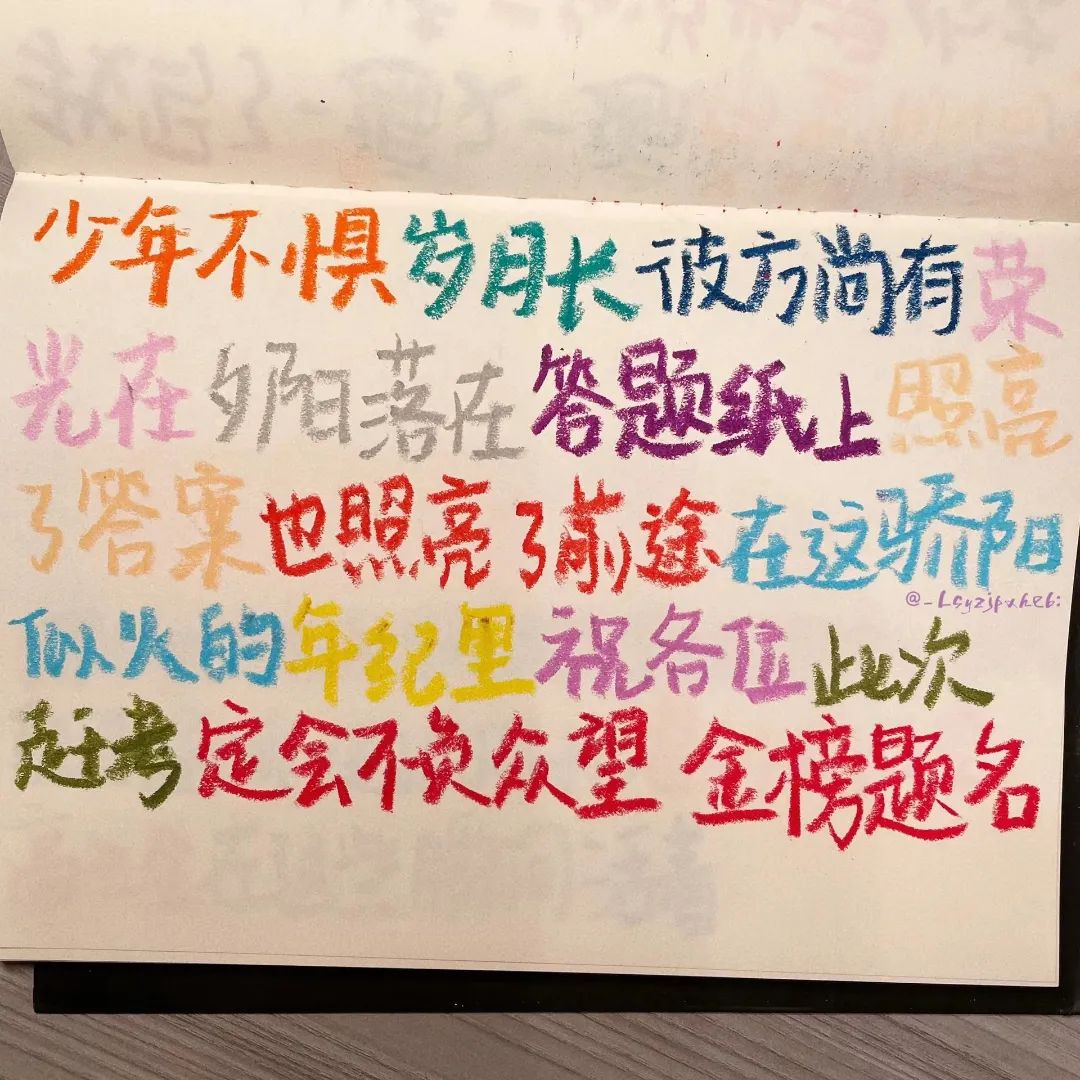 少年不惧岁月长彼方尚有荣
光在夕阳落在答题纸上照亮
了答案也照亮了前途在这骄阳
似火的年纪里祝各位此次
赶考定会不负众望 金榜题名